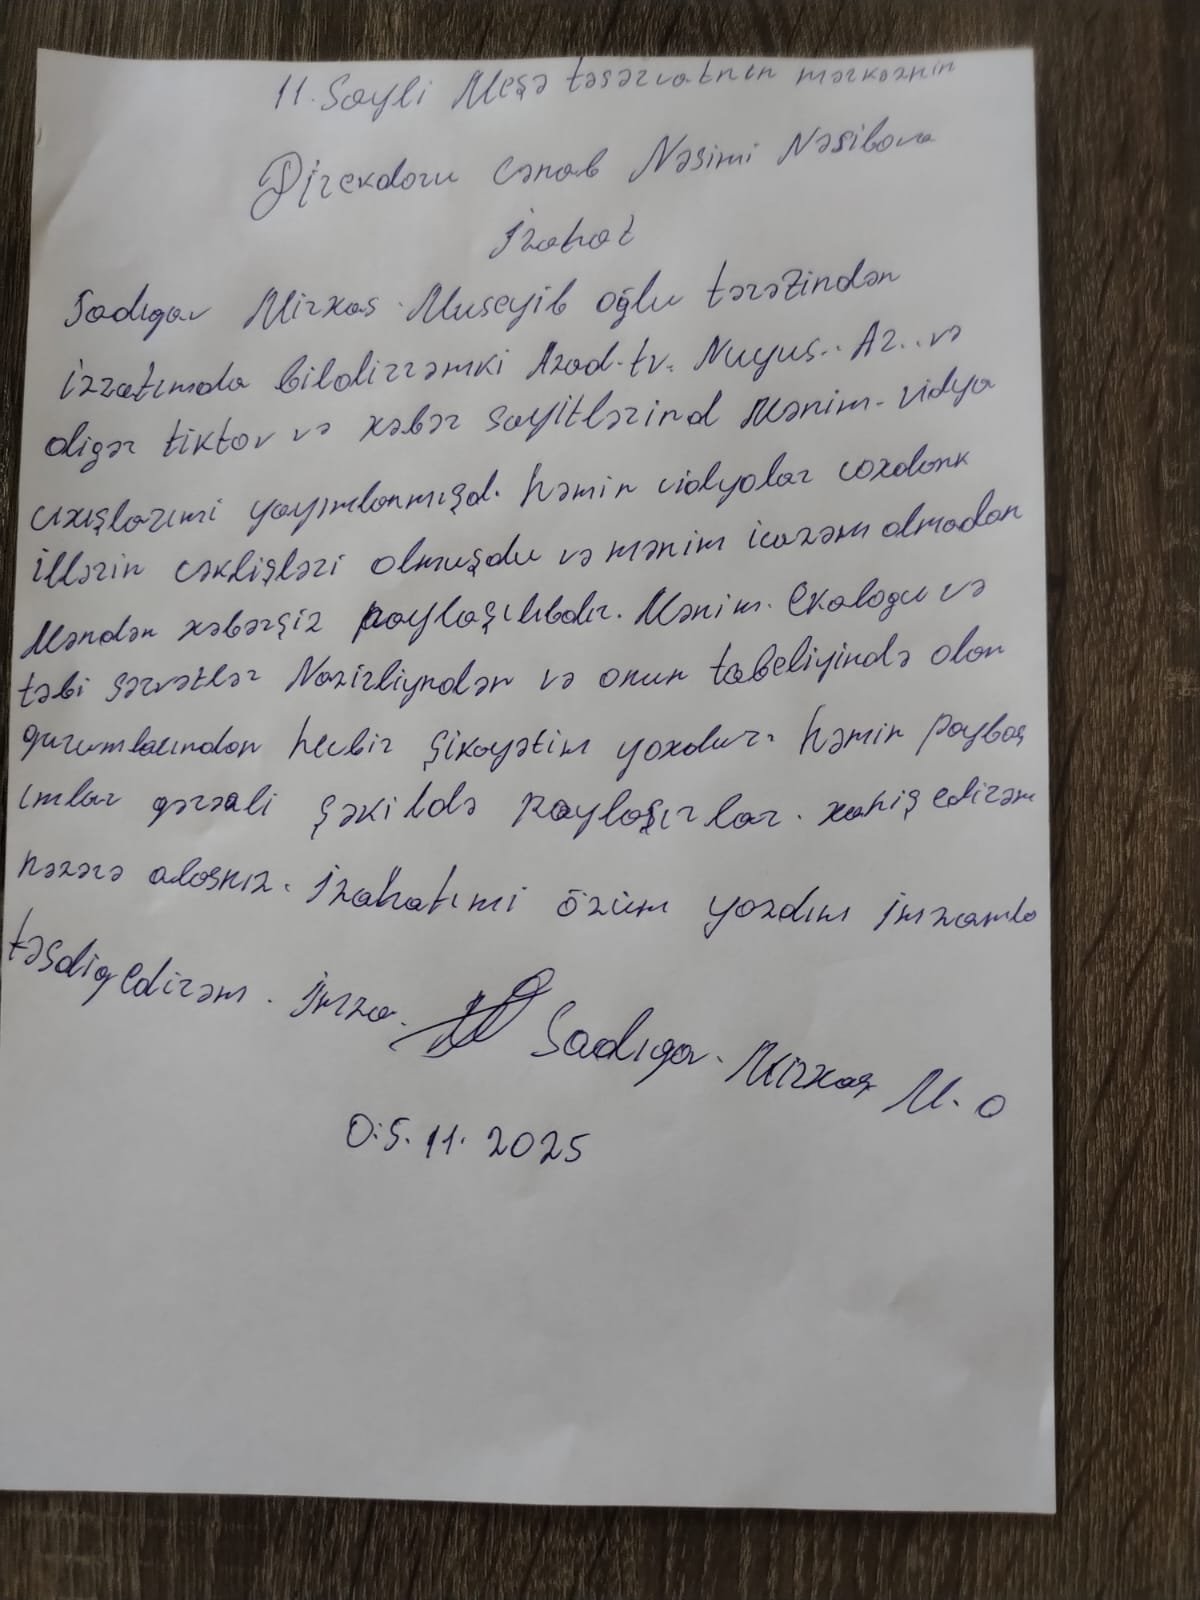 11. Sayli Meşə təsərvatnın mərkəznin
Direkdoru Cənab Nəsimi Nəsibova
İzahat
Sadıqov Mirxas Museyib oğlu tərəfindən
izzatımda bildirrəmki Azad.tv. Nuyus.. Az.. və
digər tiktov və xəbər sayitlərind Mənim. vidya
cıxışlarımi yayımlanmışd. həmin vidyolar coxdank
illərin cəklişləri olmuşdu və mənim icazəm olmadan
Məndən xəbərşiz paylaşılıbdır. Mənim. Ekalogu və
təbi şərvətlər Nazirliyndən və onun tabeliyində olan
qurumlarından hecbir şikayətim yoxdur. həmin paylaş
ımlar qərəzli şəkildə paylaşırlar. xahiş edirəm
nəzərə alasnız. İzahatımi özüm yazdım imzamla
təsdiq edirəm. İmza. Sadıqov. Mirxas M. O
0.5.11.2025